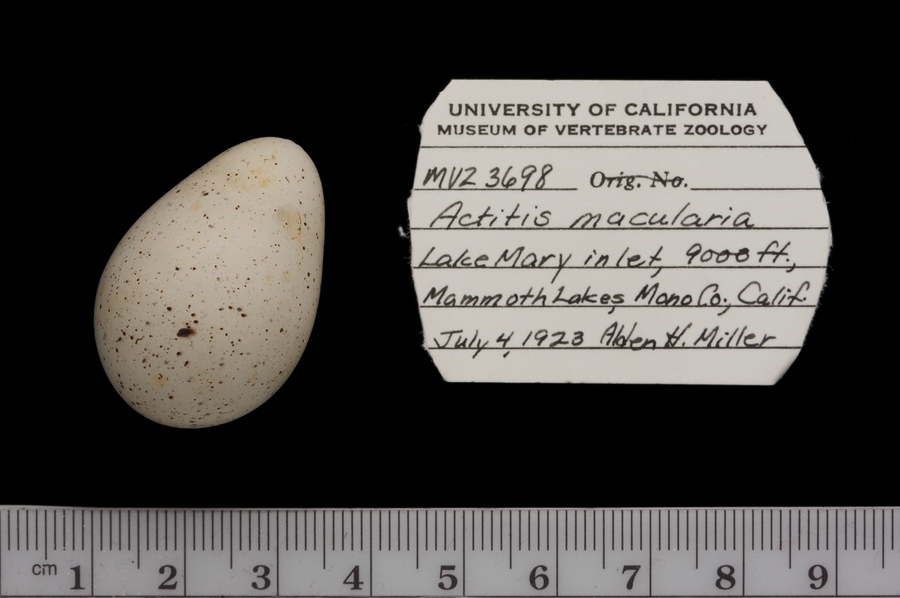 UNIVERSITY OF CALIFORNIA
MUSEUM OF VERTEBRATE ZOOLOGY
MVZ 3698 Orig. No.
Actitis macularia
Lake Mary inlet, 9000 ft.,
Mammoth Lakes, Mono Co., Calif.
July 4, 1923 Alden H. Miller
cm 1 2 3 4 5 6 7 8 9